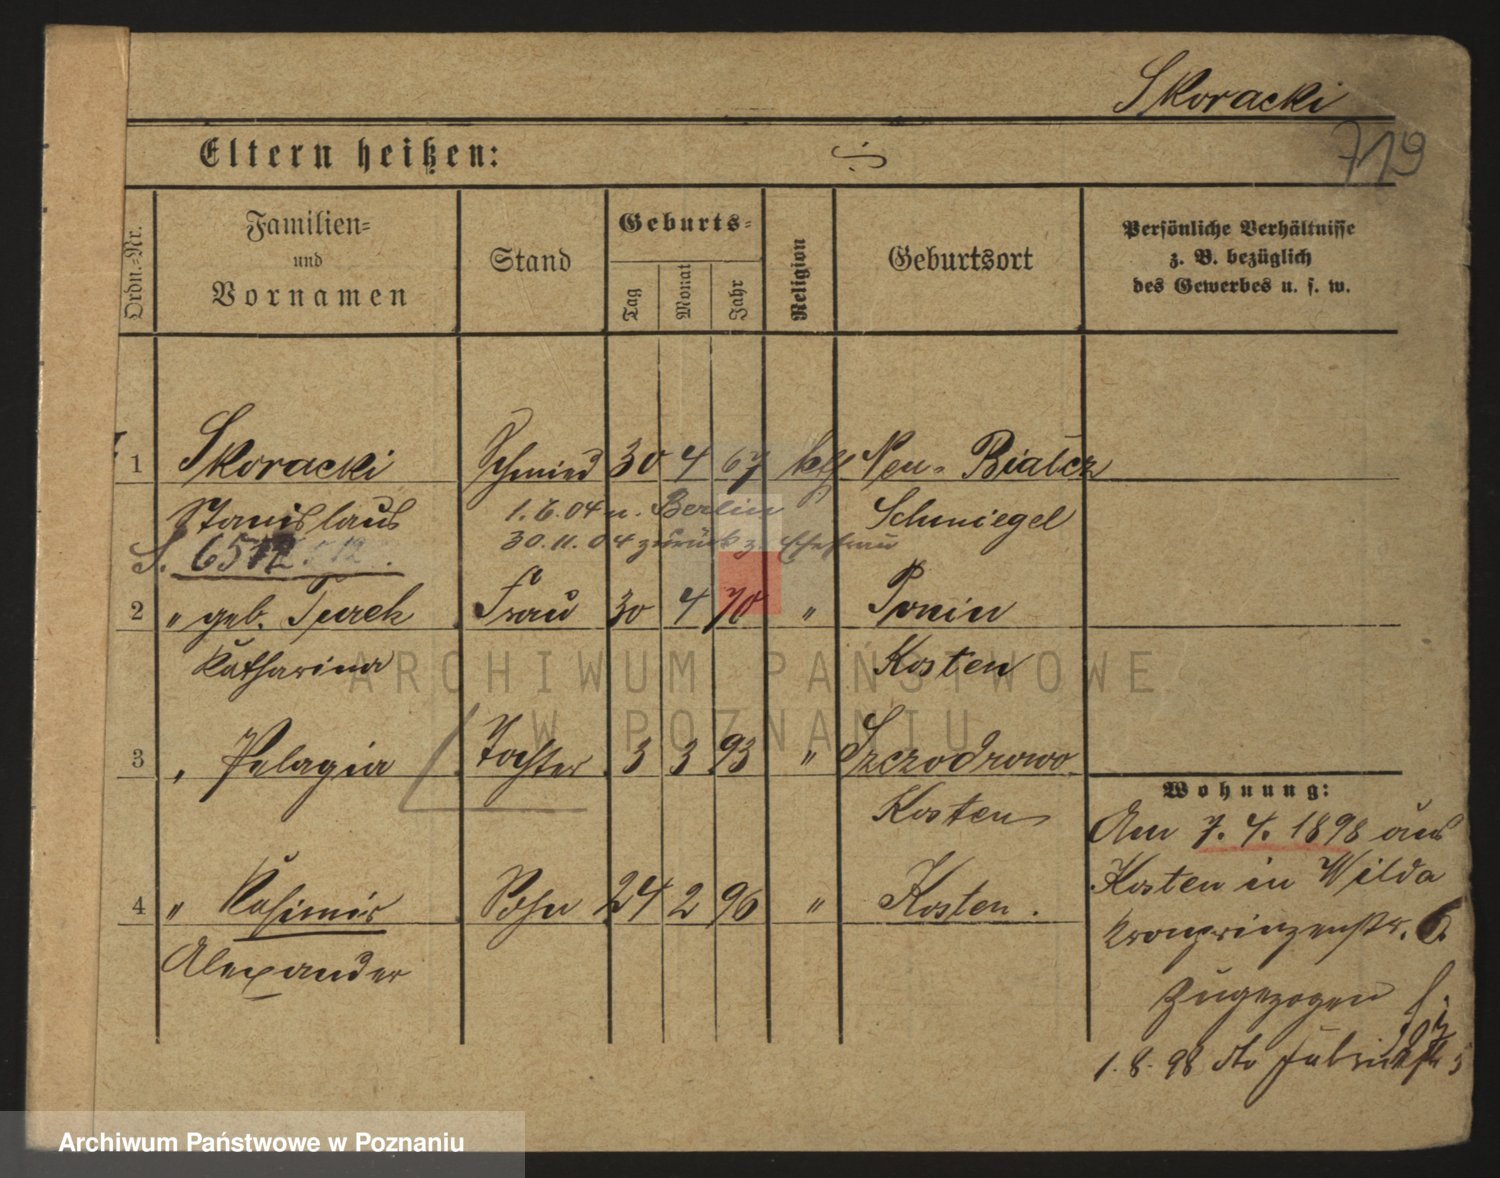 Skoracki
719
Eltern heißen:
Ordn.-Nr.
Familien-
und
Vornamen
Stand
Geburts-
Tag
Monat
Jahr
Religion
Geburtsort
Persönliche Verhältnisse
z. B. bezüglich
des Gewerbes u. s. w.
1 Skoracki Schmied 30 4 67 kath Neu-Bialcz
Stanislaus 1.6.04 n. Berlin Schmiegel
S. 6512. 30.11.04 zurück z. Ehefrau
2 " geb. Turek Frau 30 4 70 " Ponin
Katharina Kosten
3 " Pelagia Tochter 3 3 93 " Szczodrowo
Kosten
4 " Kasimir Sohn 24 2 96 " Kosten.
Alexander
Wohnung:
Am 7.4.1898 aus
Kosten in Wilda
Kronprinzenstr. 6
zugezogen
1.8.98 dto Fabrikstr 5
ARCHIWUM PAŃSTWOWE
W POZNANIU
Archiwum Państwowe w Poznaniu